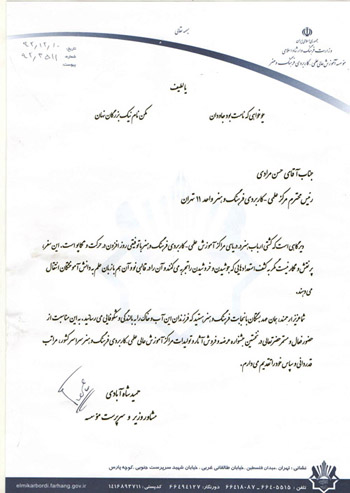 بسمه تعالی
جمهوری اسلامی ایران
وزارت فرهنگ و ارشاد اسلامی
مؤسسه آموزش عالی علمی - کاربردی فرهنگ و هنر
تاریخ
شماره
پیوست
یا لطیف
چو خواهی که نامت بود جاودان
مکن نام نیک بزرگان نهان
جناب آقای حسن مرادی
رئیس محترم مرکز علمی - کاربردی فرهنگ و هنر واحد ۱۱ تهران
دیرگاهی است که کشتی ارباب هنر در دریای مراکز آموزش علمی - کاربردی فرهنگ و هنر با توفیقی روز افزون در حرکت و تکاپو است. این سفر،
پر نقش و نگار نیست مگر به کشف استعدادهایی که جوشیدن و خروشیدن را تجربه می کنند و آن را در قالبی نو و آن هم با زبان علم به دانش آموختگان انتقال
می دهند.
شما عزیز ارجمند، جان صدها
با نجابت فرهنگ و هنر
که فرزندان این آب و خاک را به بالندگی و شکوفایی می رسانید، به این مناسبت از
حضور فعال و
در نخستین جشنواره عرضه و فروش آثار و تولیدات مراکز آموزش عالی علمی کاربردی فرهنگ و هنر سراسر کشور، مراتب
قدردانی و سپاس خود را تقدیم می دارم.
حمید شاه آبادی
مشاور وزیر و سرپرست مؤسسه
نشانی : تهران، میدان فلسطین، خیابان طالقانی غربی، خیابان شهید سرپرست جنوبی، کوچه پارس
تلفن : ۶۶۴۰۵۵۱۵ - ۶۶۴۱۸۰۸۷ دورنگار : ۶۶۴۹۴۱۲۷ کدپستی : ۱۴۱۶۸۹۳۷۱۱
elmikarbordi.farhang.gov.ir